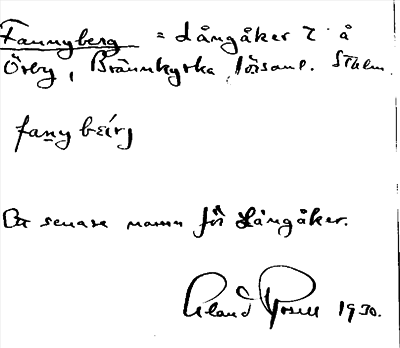 Fannyberg = Långåker 2 å
Örby, Brännkyrka, församl. Sthlm.
fany
Ett senare namn för Långåker.
Erland Rosell 1930.